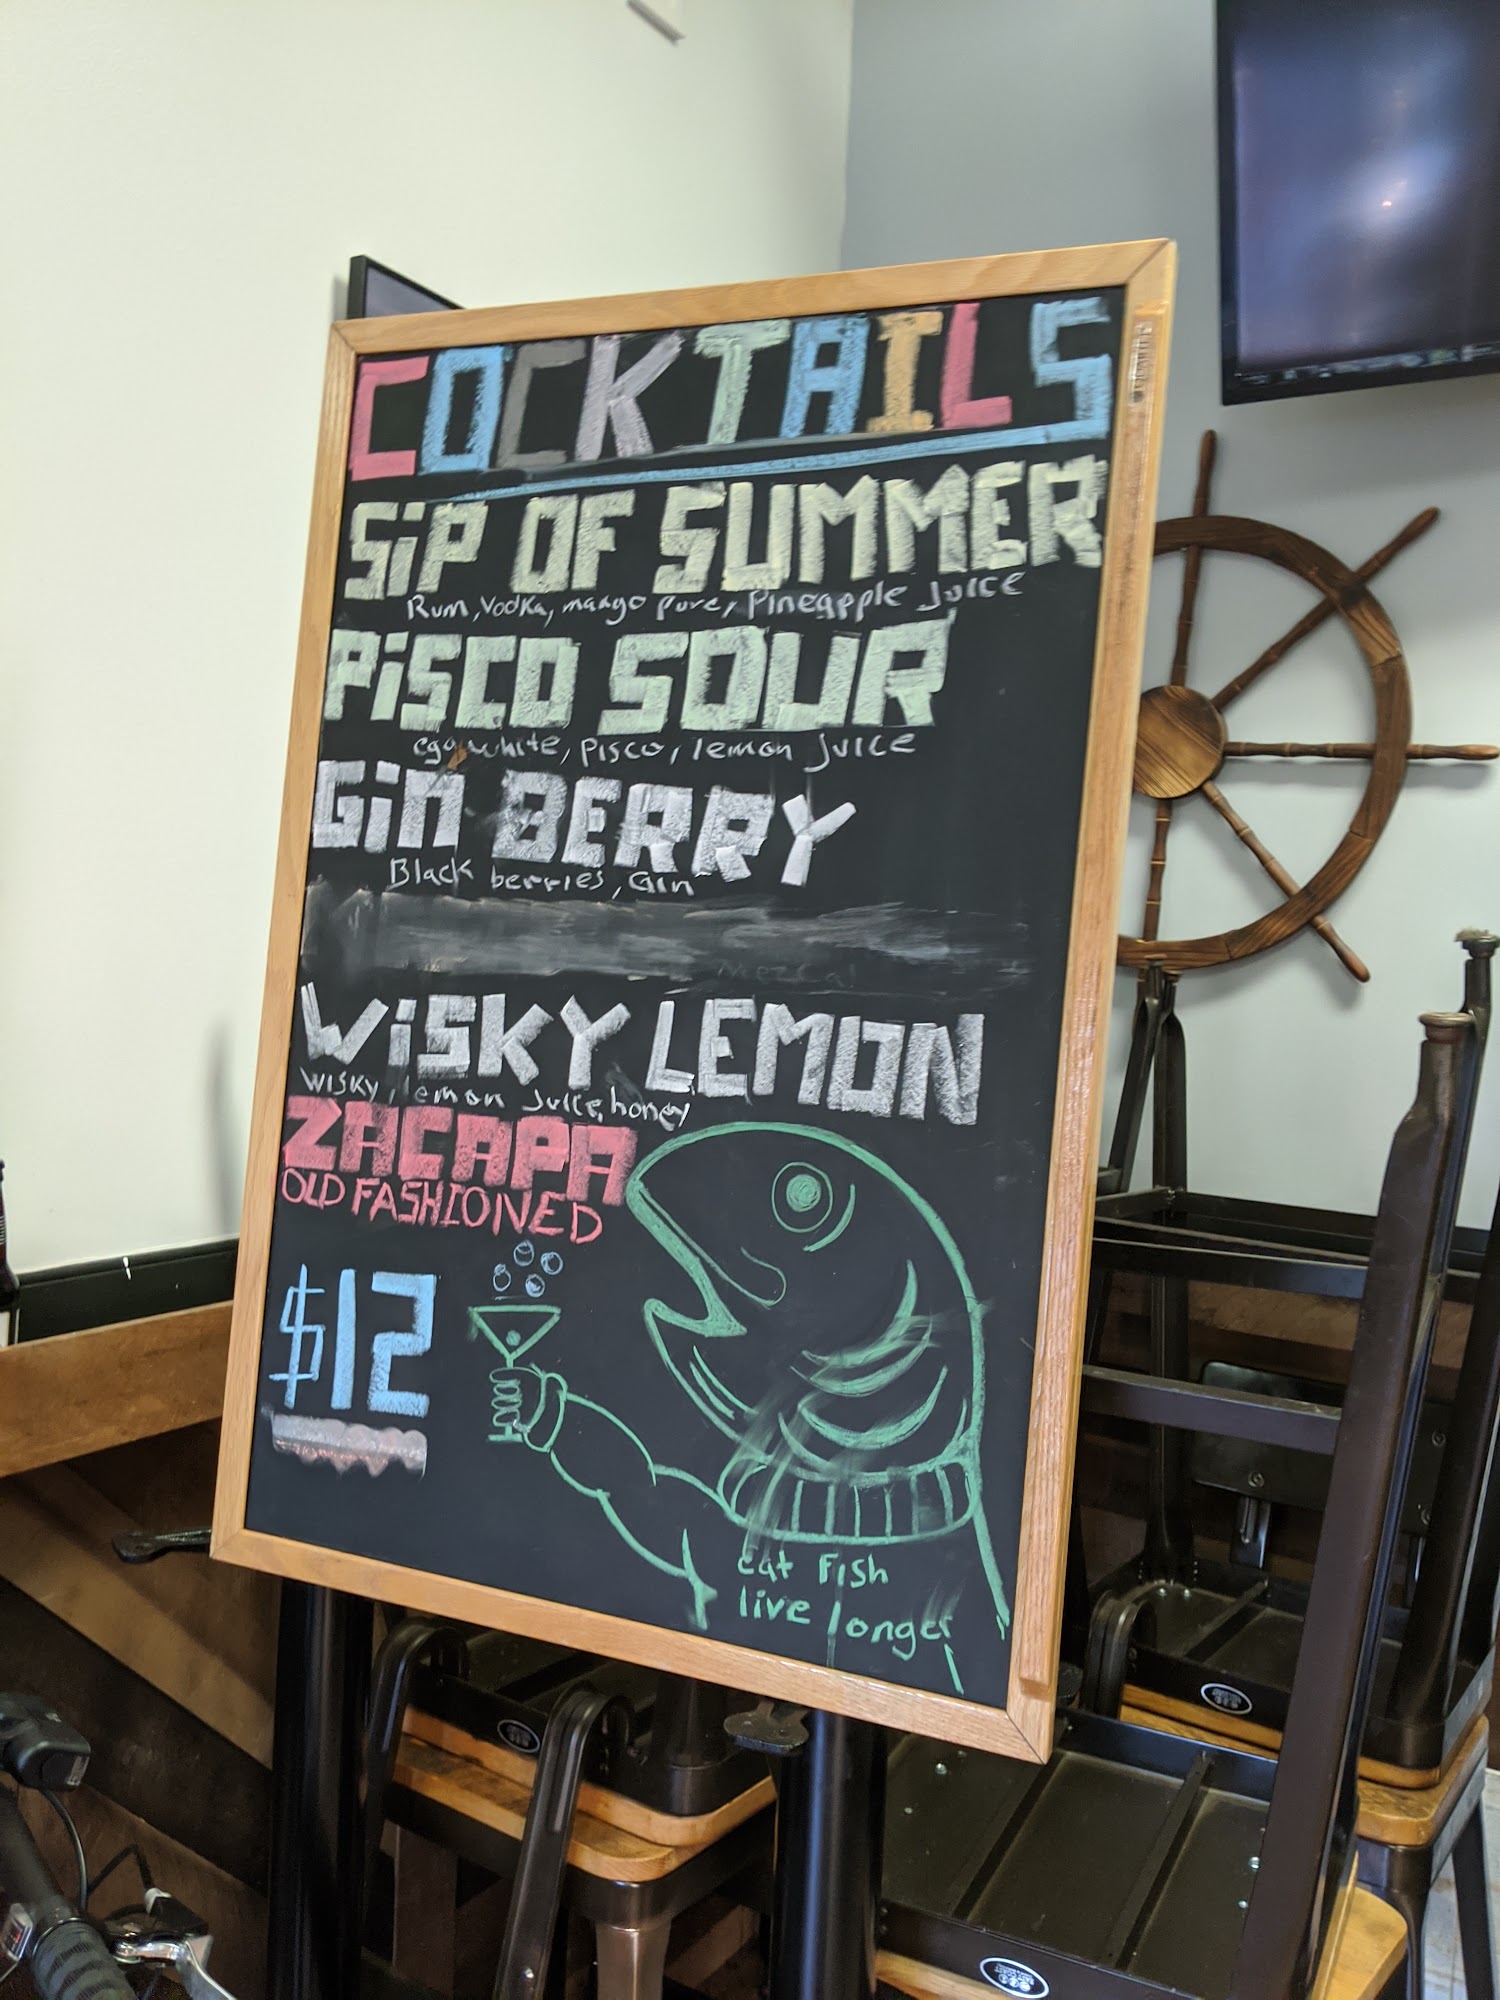 COCKTAILS
SiP OF SUMMER
Rum, Vodka, mango pure, Pineapple Juice
PiSCO SOUR
egg white, Pisco, lemon Juice
GiN BERRY
Black berries, Gin
Mezcal
WiSKY LEMON
WISKY, lemon Juice, honey
ZACAPA
OLD FASHIONED
$12
eat Fish
live longer